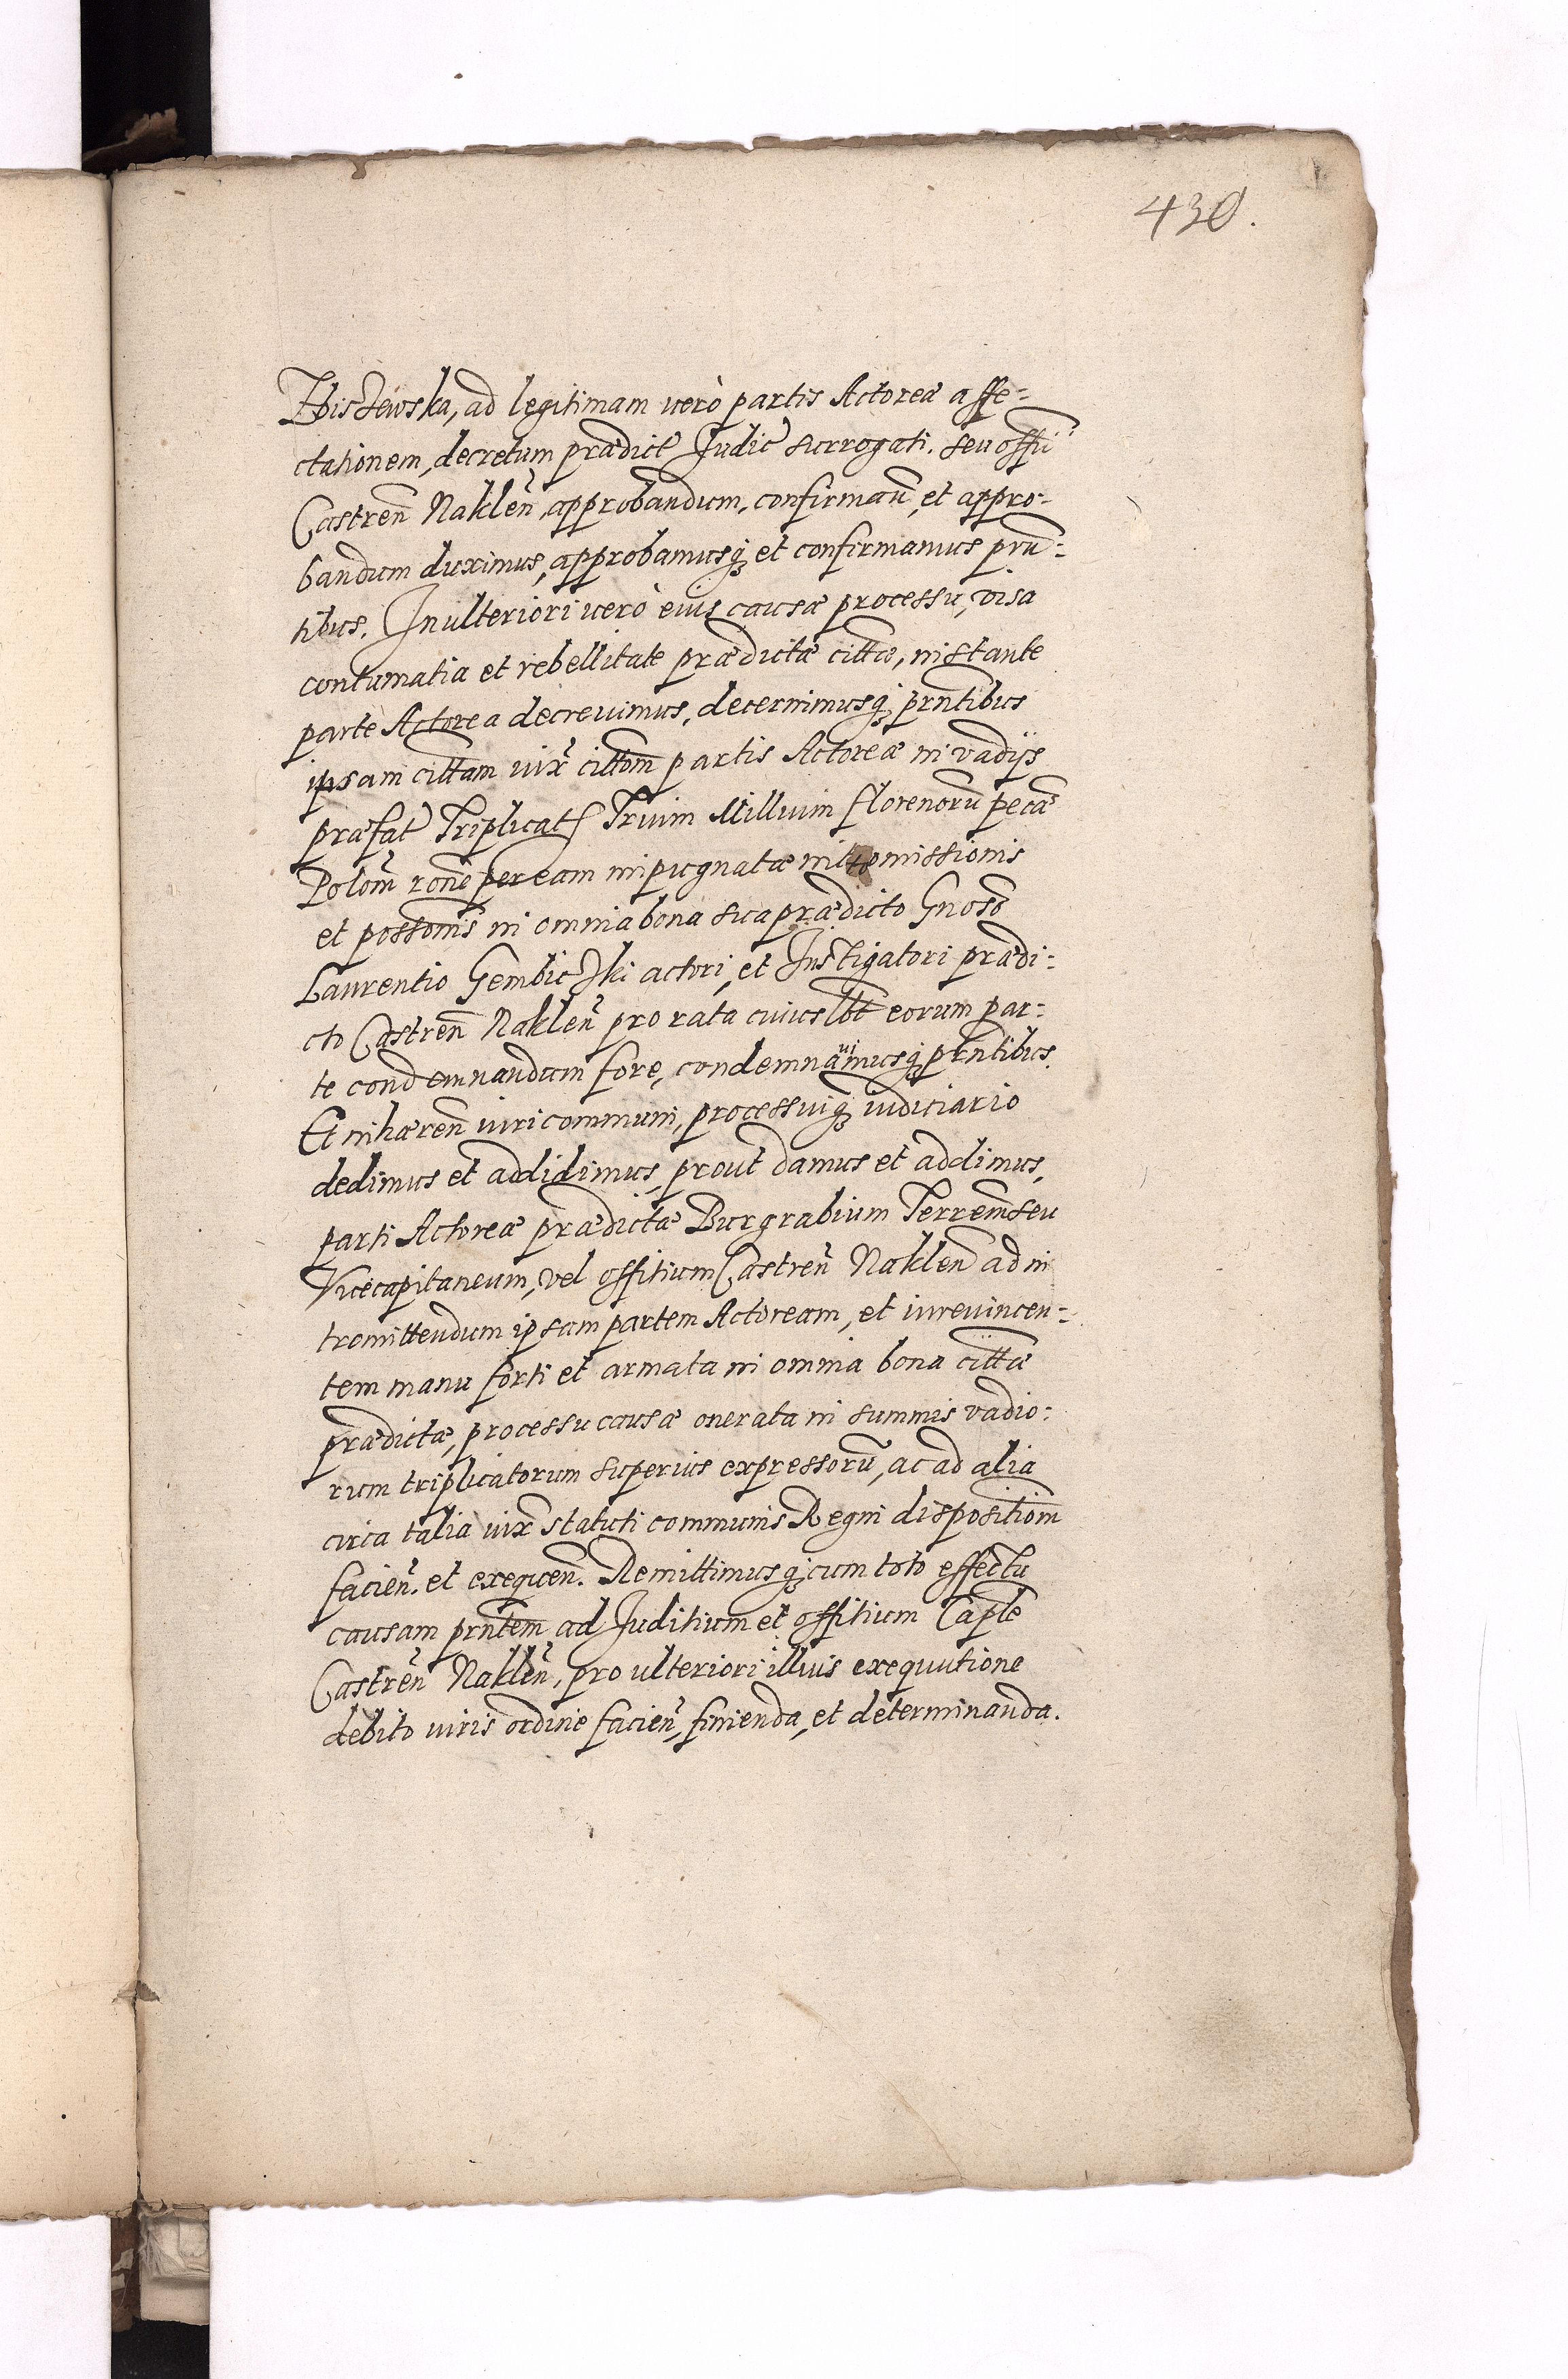 430.
Zbiszewska, ad legitimam verò partis Actoreæ affe=
ctationem, decretum prædict Judic surrogati. seu offii
Castren̄ Naklen̄, approbandum, confirman̄, et appro=
bandum duximus, approbamusq3 et confirmamus prn̄=
tibus. In ulteriori verò eius causæ processu, visa
contumatia et rebellitate prædictæ citt̄æ, instante
parte Actorea decrevimus, decernimusq3 prn̄tibus
ipsam citt̄am iux̄ citt̄om̄ partis Actoreæ in vadijs
præfat Triplicat Trium Millium florenorū pecæ
Polon̄ rōne per eam impugnatæ intromissionis
et possōnis in omnia bona sua prædicto Gnoso
Laurentio Gembiczki actori, et Instigatori prædi=
cto Castren̄ Naklen̄ pro rata cuiuslbt eorum par=
te condemnandam fore, condemnauimusq3 prn̄tibus.
Et inhæren̄ iuri communi, processuiq3 iudiciario
dedimus et addidimus, prout damus et addimus,
parti Actoreæ prædictæ Burgrabium Terrem̄ seu
Vicecapitaneum, vel offitium Castren̄ Naklen̄ ad in
tromittendum ipsam partem Actoream, et iurevincen=
tem manu forti et armata in omnia bona citt̄æ
prædictæ, processu causæ onerata in summis vadio=
rum triplicatorum superius expressorū, ac ad alia
circa talia iux̄ statuti communis Regni dispositiōm
facien̄. et exequen̄. Remittimusq3 cum toto effectu
causam prn̄tem ad Juditium et offitium Caple
Castren̄ Naklen̄, pro ulteriori illius exequutione
debito iuris ordine facien̄, finienda, et determinanda.